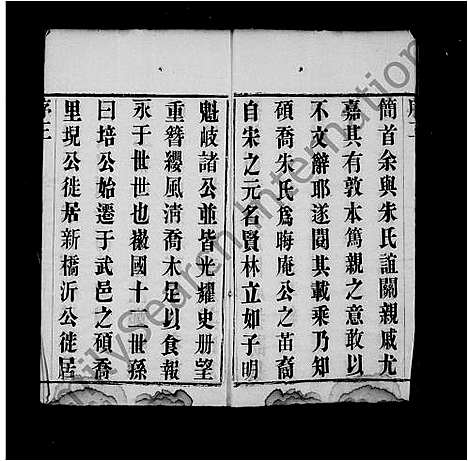 簡首余與朱氏誼關親戚尤
嘉其有敦本篤親之意敢以
不文辭耶遂閱其載乘乃知
碩喬朱氏爲晦庵公之苗裔
自宋之元名賢林立如子明
魁岐諸公並皆光耀史册望
重簪纓風淸喬木足以食報
永于世世也徽國十二世孫
曰培公始遷于武邑之碩喬
里堄公徙居新橋沂公徙居
序三